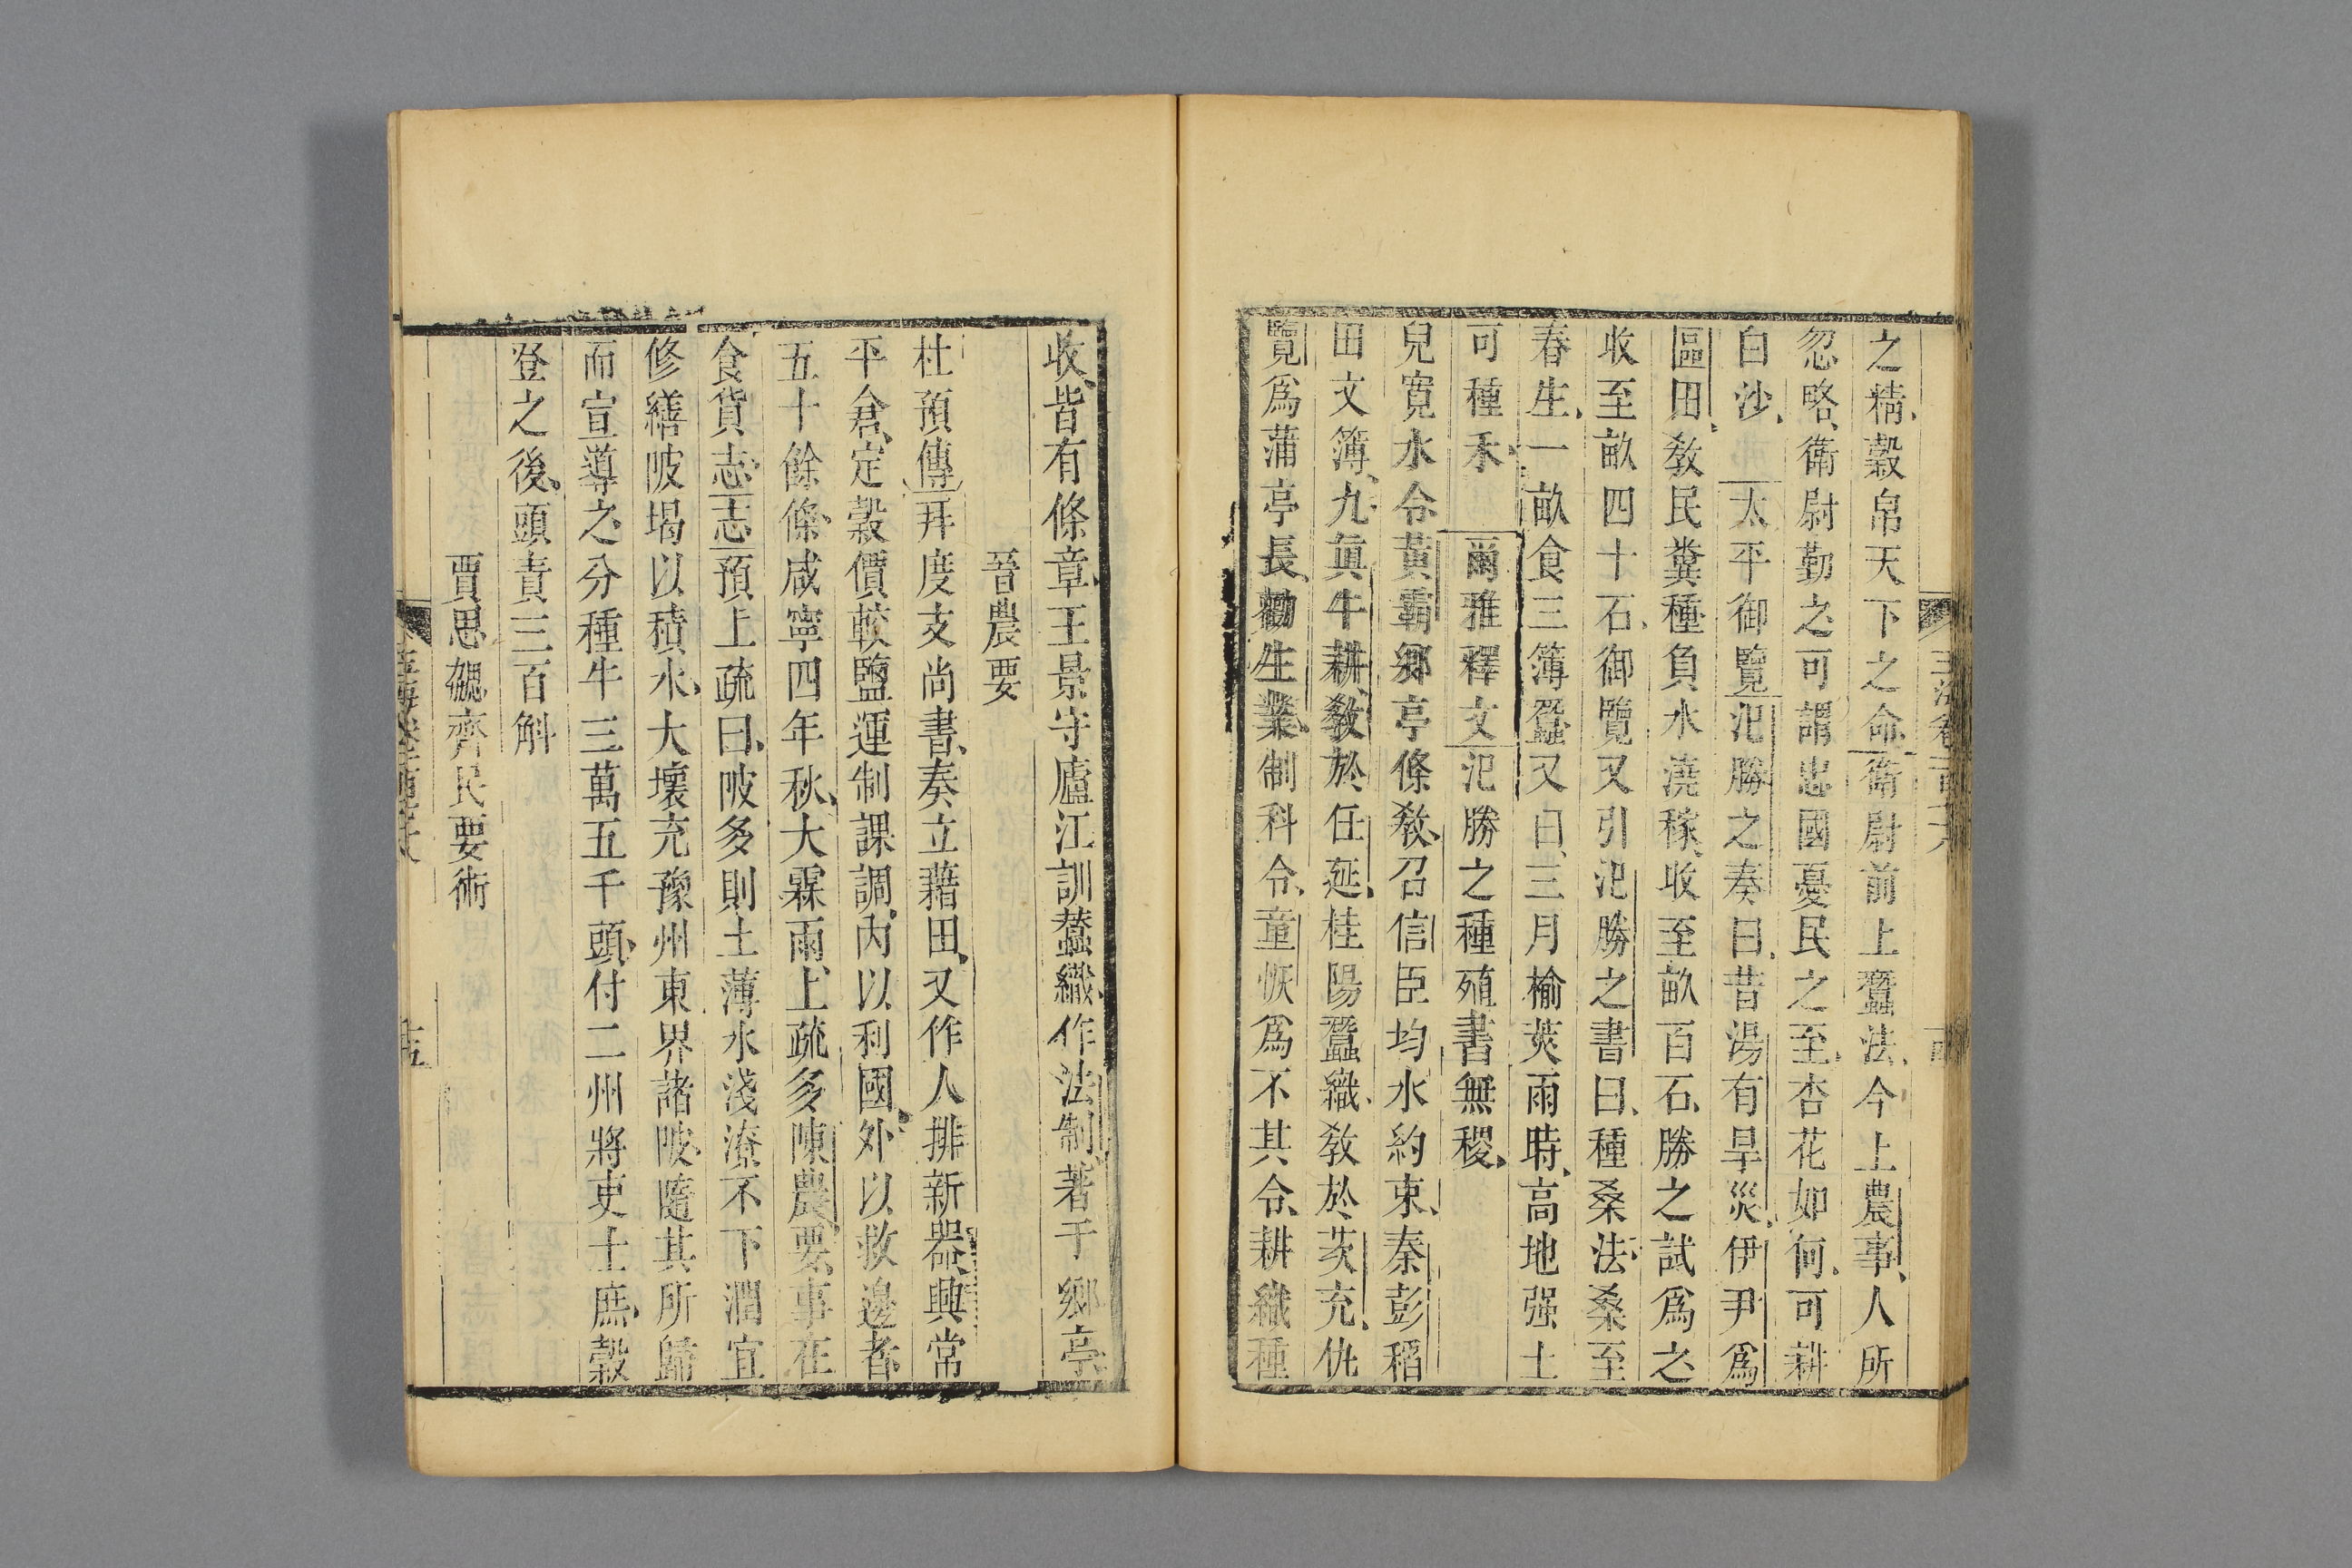 之精穀帛天下之命衞尉前上蠶法今上農事人所
忽略衞尉勤之可謂忠國憂民之至杏花如何可耕
白沙 太平御覽氾勝之奏曰昔湯有旱災伊尹爲
區田敎民糞種負水澆稼收至畝百石勝之試爲之
收至畝四十石御覽又引氾勝之書曰種桑法桑至
春生一畝食三簿蠶又曰三月榆莢雨時高地强土
可種禾 爾雅釋文氾勝之種殖書無稷
兒寬水令黃霸鄉亭條敎召信臣均水約束秦彭稻
田文簿九眞牛耕敎於任延桂陽蠶織敎於茨充仇
覽爲蒲亭長勸生業制科令童恢爲不其令耕織種
收皆有條章王景守廬江訓蠶織作法制著于鄉亭
晉農要
杜預傳拜度支尚書奏立藉田又作人排新器興常
平倉定穀價較鹽運制課調內以利國外以救邊者
五十餘條咸寧四年秋大霖雨上疏多陳農要事在
食貨志志預上疏曰陂多則土薄水淺潦不下潤宜
修繕陂堨以積水大壞兖豫州東界諸陂隨其所歸
而宣導之分種牛三萬五千頭付二州將吏士庶穀
登之後頭責三百斛
賈思勰齊民要術